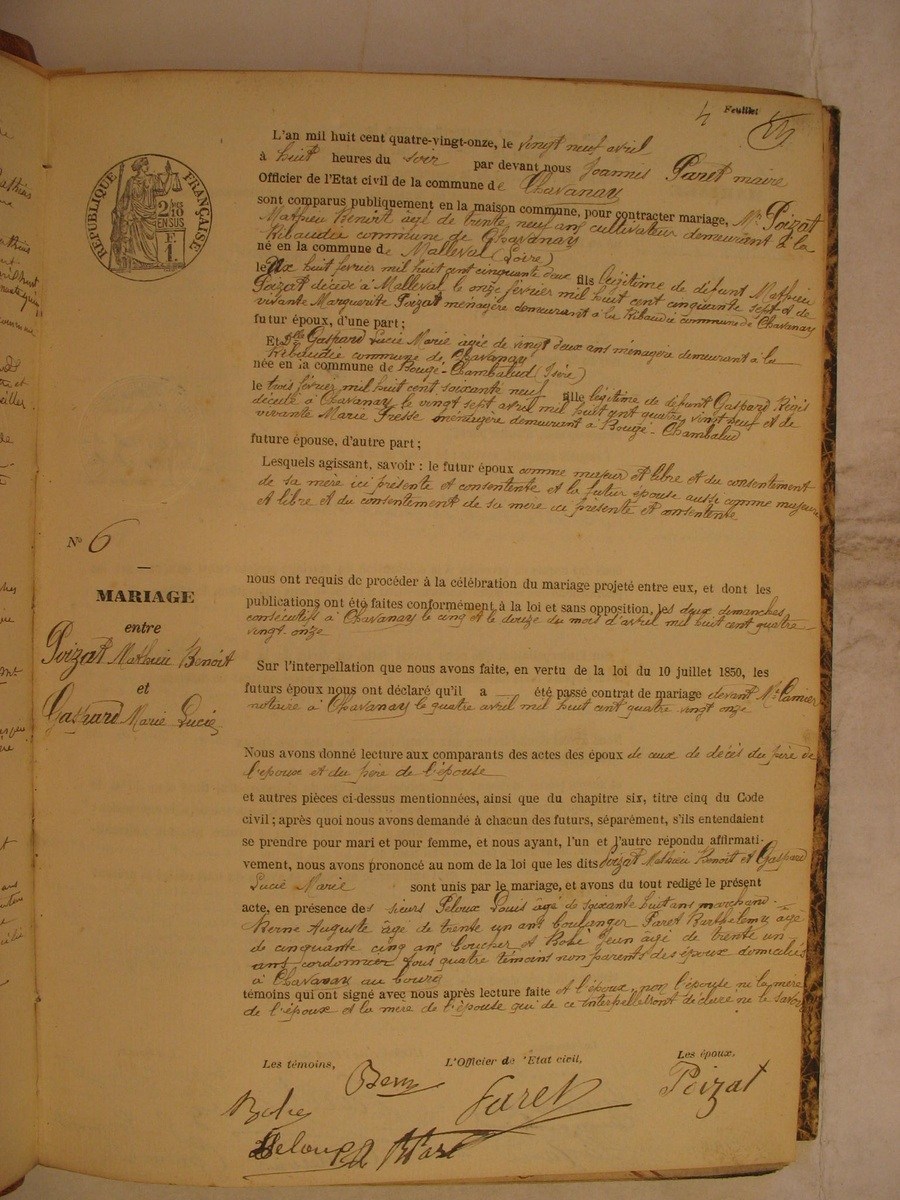 4 Feuillet
RÉPUBLIQUE FRANÇAISE
2/10
EN SUS
F
1.
L'an mil huit cent quatre-vingt-onze, le vingt neuf avril
à huit heures du soir par devant nous Joannès Paret maire
Officier de l'Etat civil de la commune de Chavanay
sont comparus publiquement en la maison commune, pour contracter mariage, Mr Poizat
Mathieu Benoit âgé de trente neuf ans cultivateur demeurant à la
Ribaudée commune de Chavanay
né en la commune de Malleval (Loire)
le dix huit février mil huit cent cinquante deux fils légitime de défunt Mathieu
Poizat décédé à Malleval le onze février mil huit cent cinquante sept et de
vivante Marguerite Poizat ménagère demeurant à la Ribaudée commune de Chavanay
futur époux, d'une part ;
Et Dlle Gaspard Lucie Marie agée de vingt deux ans ménagère demeurant à la
Ribaudée commune de Chavanay
née en la commune de Bougé-Chambalud (Isère)
le trois février mil huit cent soixante neuf fille légitime de défunt Gaspard Régis
décédé à Chavanay le vingt sept avril mil huit cent quatre vingt neuf et de
vivante Marie Fresse ménagère demeurant à Bougé-Chambalud
future épouse, d'autre part ;
Lesquels agissant, savoir : le futur époux comme majeur et libre et du consentement
de sa mère ici présente et consentente et la futur épouse aussi comme majeure
et libre et du consentement de sa mère ici présente et consentente
No 6
MARIAGE
entre
Poizat Mathieu Benoit
et
Gaspard Marie Lucie
nous ont requis de procéder à la célébration du mariage projeté entre eux, et dont les
publications ont été faites conformément à la loi et sans opposition, les deux dimanches
consécutifs à Chavanay le cinq et le douze du mois d'avril mil huit cent quatre
vingt onze
Sur l'interpellation que nous avons faite, en vertu de la loi du 10 juillet 1850, les
futurs époux nous ont déclaré qu'il a — été passé contrat de mariage devant Mt Camier
notaire à Chavanay le quatre avril mil huit cent quatre vingt onze
Nous avons donné lecture aux comparants des actes des époux de ceux de décès du père de
l'époux et du père de l'épouse
et autres pièces ci-dessus mentionnées, ainsi que du chapitre six, titre cinq du Code
civil ; après quoi nous avons demandé à chacun des futurs, séparément, s'ils entendaient
se prendre pour mari et pour femme, et nous ayant, l'un et l'autre répondu affirmati-
vement, nous avons prononcé au nom de la loi que les dits Poizat Mathieu Benoit et Gaspard
Lucie Marie sont unis par le mariage, et avons du tout redigé le présent
acte, en présence des sieurs Peloux Louis âgé de soixante huit ans marchand.
Berne Auguste âgé de trente un ans boulanger Paret Barthelemy âgé
de cinquante cinq ans boucher et Bohé Jean âgé de trente un
ans cordonnier tous quatre témoins non parents des époux domiciliés
à Chavanay au bourg
témoins qui ont signé avec nous après lecture faite et l'époux, non l'épouse ni la mère
de l'époux et la mère de l'épouse qui de ce interpellé ont déclaré ne le savoir
Les témoins,
L'Officier de l'Etat civil,
Les époux,
Bern
Paret
Poizat
Bohe
Peloux
Paret